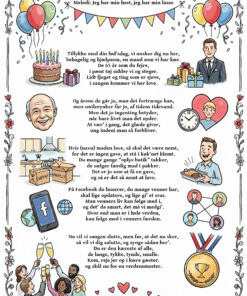 Melodi: Jeg har min hest, jeg har min lasso
Tillykke med din fød'sdag, vi ønsker dig nu her,
behagelig og hjælpsom, en mand som vi har kær.
De 65 år som du fejre,
i pænt tøj sidder vi og
Lidt fjoget og ting som er sjove,
i sangen kommer vi her love.
Og årene de går jo, man det fortrænge kan,
men smilerynker får jo, af tidens tidevand.
Men det jo ingenting betyder,
når bare livet man det nyder.
At var' i gang, det glæde giver,
ung indeni man så forbliver.
Hvis (navn) maden lave, så skal det være nemt,
for det er ingen gave, at stå i køk'net klemt.
Du mange gange "oplys butik" takker,
de sælger færdig mad i pakker.
Det er jo som at få en gave,
og så er det så nemt at lave.
På Facebook du huserer, du mange venner har,
skal lige opdatere, og lige gi' et svar.
Man venners liv kan følge med i,
og det' da smart, det må vi medgi'.
Hvor end man er i hele verden,
kan følge med i venners færden.
Nu vil vi sangen slutte, men før, at det nu sker,
så vil vi dig salutte, og synge sådan her'.
Du er en ven, for alle,
de lange, tykke, tynde, smalle.
Kom, rejs jer op i kæne gæster,
og skål nu for en verdensmester.